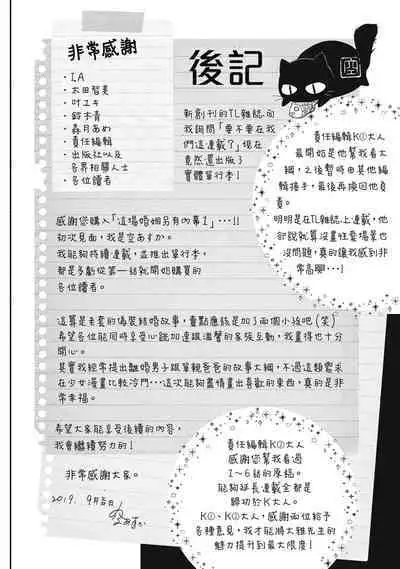 後記
新創刊的TL雜誌向
我詢問「要不要在我
們這連載?」現在
竟然還出版了
實體單行本!
感謝您購入「這場婚姻另有內幕1」…!!
初次見面,我是空あすか。
我能夠持續連載,並推出單行本,
都是多虧從第一話就開始購買的
各位讀者。
這算是老套的偽裝結婚故事,重點應該是加了兩個小孩吧(笑)
希望各位能同時享受心動加速跟溫馨的家族互動,我畫得也十分
開心。
其實我經常提出離婚男子跟單親爸爸的故事大綱,不過這類需求
在少女漫畫比較冷門…這次能夠盡情畫出喜歡的東西,真的是非
常幸福。
希望大家能享受後續的內容,
我會繼續努力的!
非常感謝大家。
2019. 9月吉日
非常感謝
・IA
・太田智美
・叶ユキ
・鈴木青
・森月あめ
・責任編輯
・出版社以及
各界相關人士
・各位讀者
空
責任編輯K①大人
最開始是他幫我看大
綱,之後暫時由其他編
輯接手,最後再換回他負
責。
明明是在TL雜誌上連載,他
卻說就算沒畫性愛場景也
沒問題,真的讓我感到非
常高興…!
責任編輯K②大人
感謝您幫我看過
1～6話的原稿。
能夠延長連載全都是
歸功於K大人。
K①、K②大人,感謝兩位給予
各種意見,我才能將大雅先生的
魅力提升到最大限度!